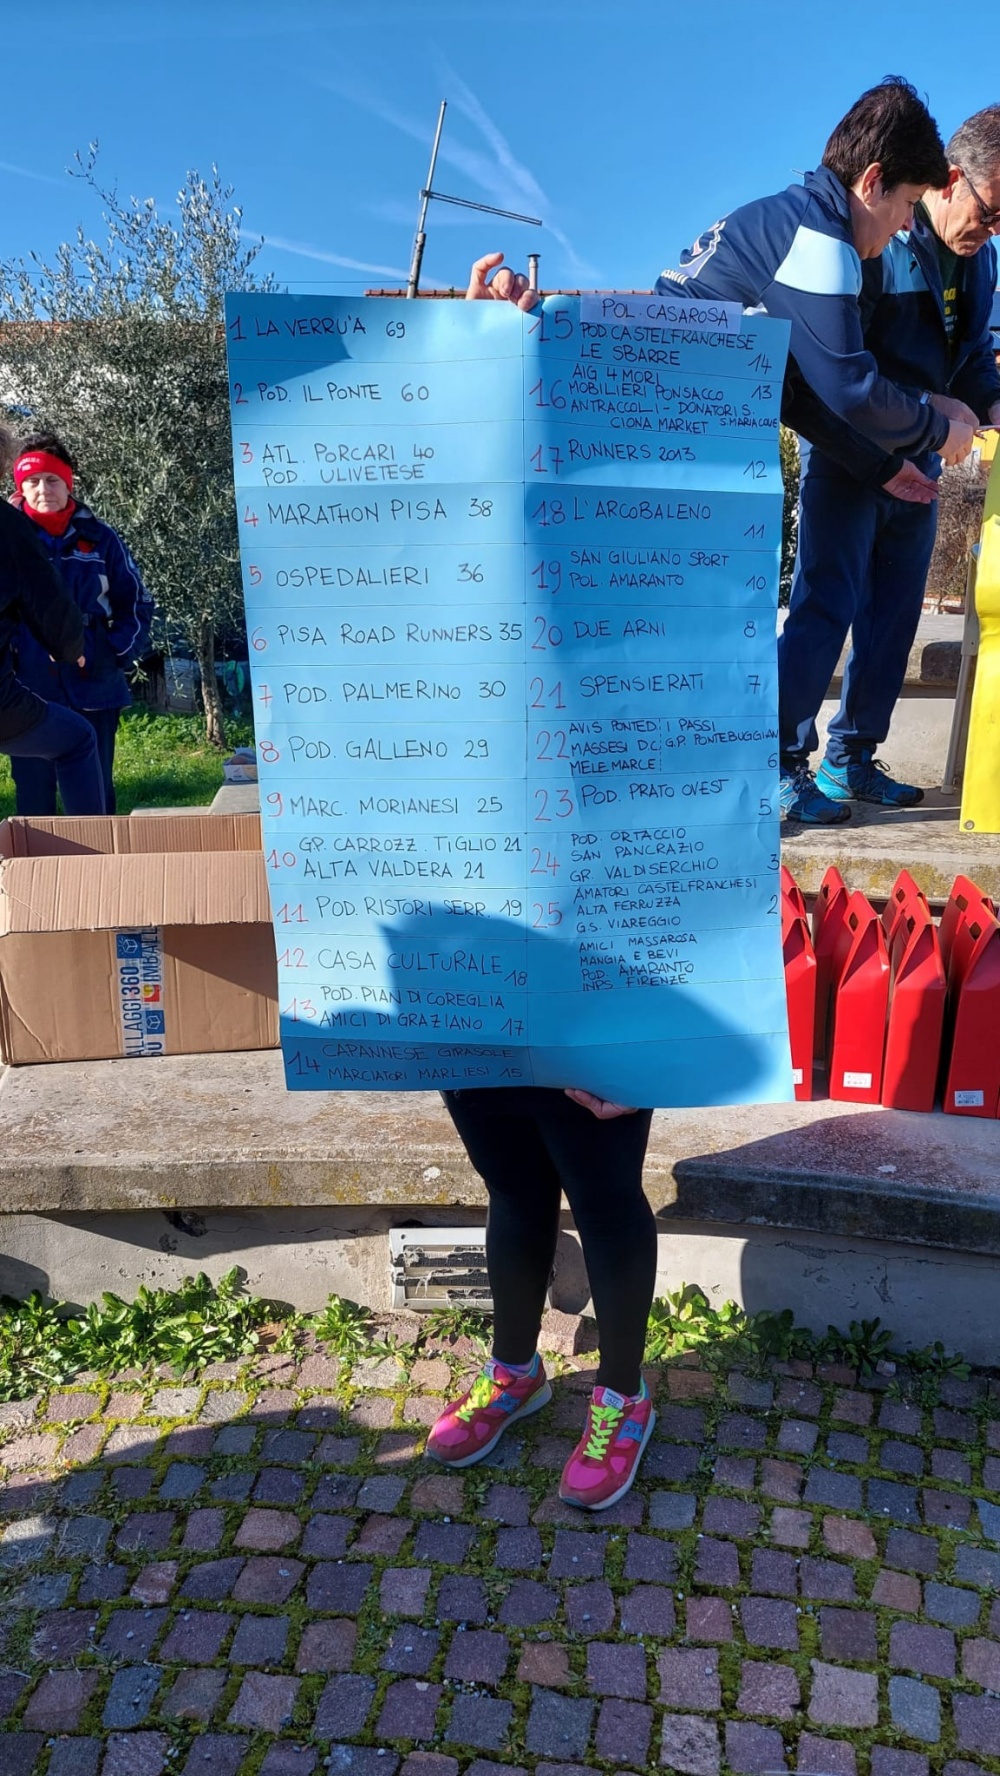 1 LA VERRU'A 69
2 POD. IL PONTE 60
3 ATL. PORCARI 40
POD. ULIVETESE
4 MARATHON PISA 38
5 OSPEDALIERI 36
6 PISA ROAD RUNNERS 35
7 POD. PALMERINO 30
8 POD. GALLENO 29
9 MARC. MORIANESI 25
10 GP. CARROZZ. TIGLIO 21
ALTA VALDERA 21
11 POD. RISTORI SERR. 19
12 CASA CULTURALE 18
13 POD. PIAN DI COREGLIA
AMICI DI GRAZIANO 17
14 CAPANNESE GIRASOLE
MARCIATORI MARLIESI 15
POL. CASAROSA
15 POD. CASTELFRANCHESE
LE SBARRE 14
AIG 4 MORI
16 MOBILIERI PONSACCO 13
ANTRACCOLI - DONATORI S.
CIONA MARKET S. MARIA
17 RUNNERS 2013 12
18 L'ARCOBALENO 11
SAN GIULIANO SPORT
19 POL. AMARANTO 10
20 DUE ARNI 8
21 SPENSIERATI 7
AVIS PONTED. I PASSI
22 MASSESI D.C. G.P. PONTEBUGGIAN
MELE MARCE 6
23 POD. PRATO OVEST 5
POD. ORTACCIO
24 SAN PANCRAZIO
GR. VALDISERCHIO 3
AMATORI CASTELFRANCHESI
25 ALTA FERRUZZA 2
G.S. VIAREGGIO
AMICI MASSAROSA
MANGIA E BEVI
POD. AMARANTO
INPS. FIRENZE
ALLAGGI360
IMBALL